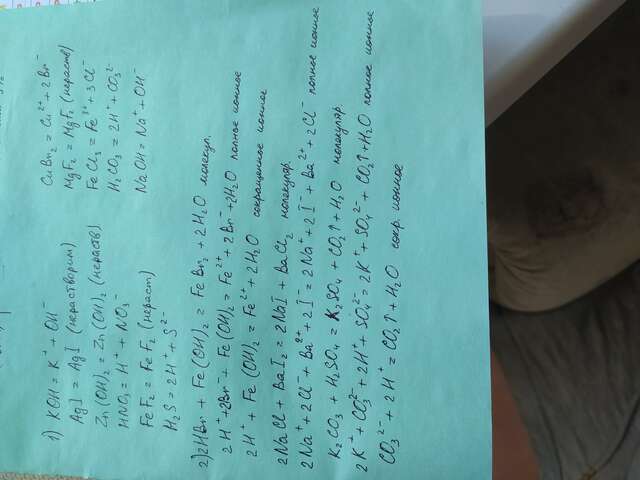 1) KOH = K⁺ + OH⁻
AgI = AgI (нерастворим)
Zn(OH)₂ = Zn(OH)₂ (нераств)
HNO₃ = H⁺ + NO₃⁻
FeF₂ = FeF₂ (нераст)
H₂S = 2H⁺ + S²⁻
CuBr₂ = Cu²⁺ + 2Br⁻
MgF₂ = MgF₂ (нераств)
FeCl₃ = Fe³⁺ + 3Cl⁻
H₂CO₃ = 2H⁺ + CO₃²⁻
NaOH = Na⁺ + OH⁻
2) 2HBr + Fe(OH)₂ = FeBr₂ + 2H₂O молекул.
2H⁺ + 2Br⁻ + Fe(OH)₂ = Fe²⁺ + 2Br⁻ + 2H₂O полное ионное
2H⁺ + Fe(OH)₂ = Fe²⁺ + 2H₂O сокращенное ионное
2NaCl + BaI₂ = 2NaI + BaCl₂ молекуляр.
2Na⁺ + 2Cl⁻ + Ba²⁺ + 2I⁻ = 2Na⁺ + 2I⁻ + Ba²⁺ + 2Cl⁻ полное ионное
K₂CO₃ + H₂SO₄ = K₂SO₄ + CO₂↑ + H₂O молекуляр
2K⁺ + CO₃²⁻ + 2H⁺ + SO₄²⁻ = 2K⁺ + SO₄²⁻ + CO₂↑ + H₂O полное ионное
CO₃²⁻ + 2H⁺ = CO₂↑ + H₂O сокр. ионное